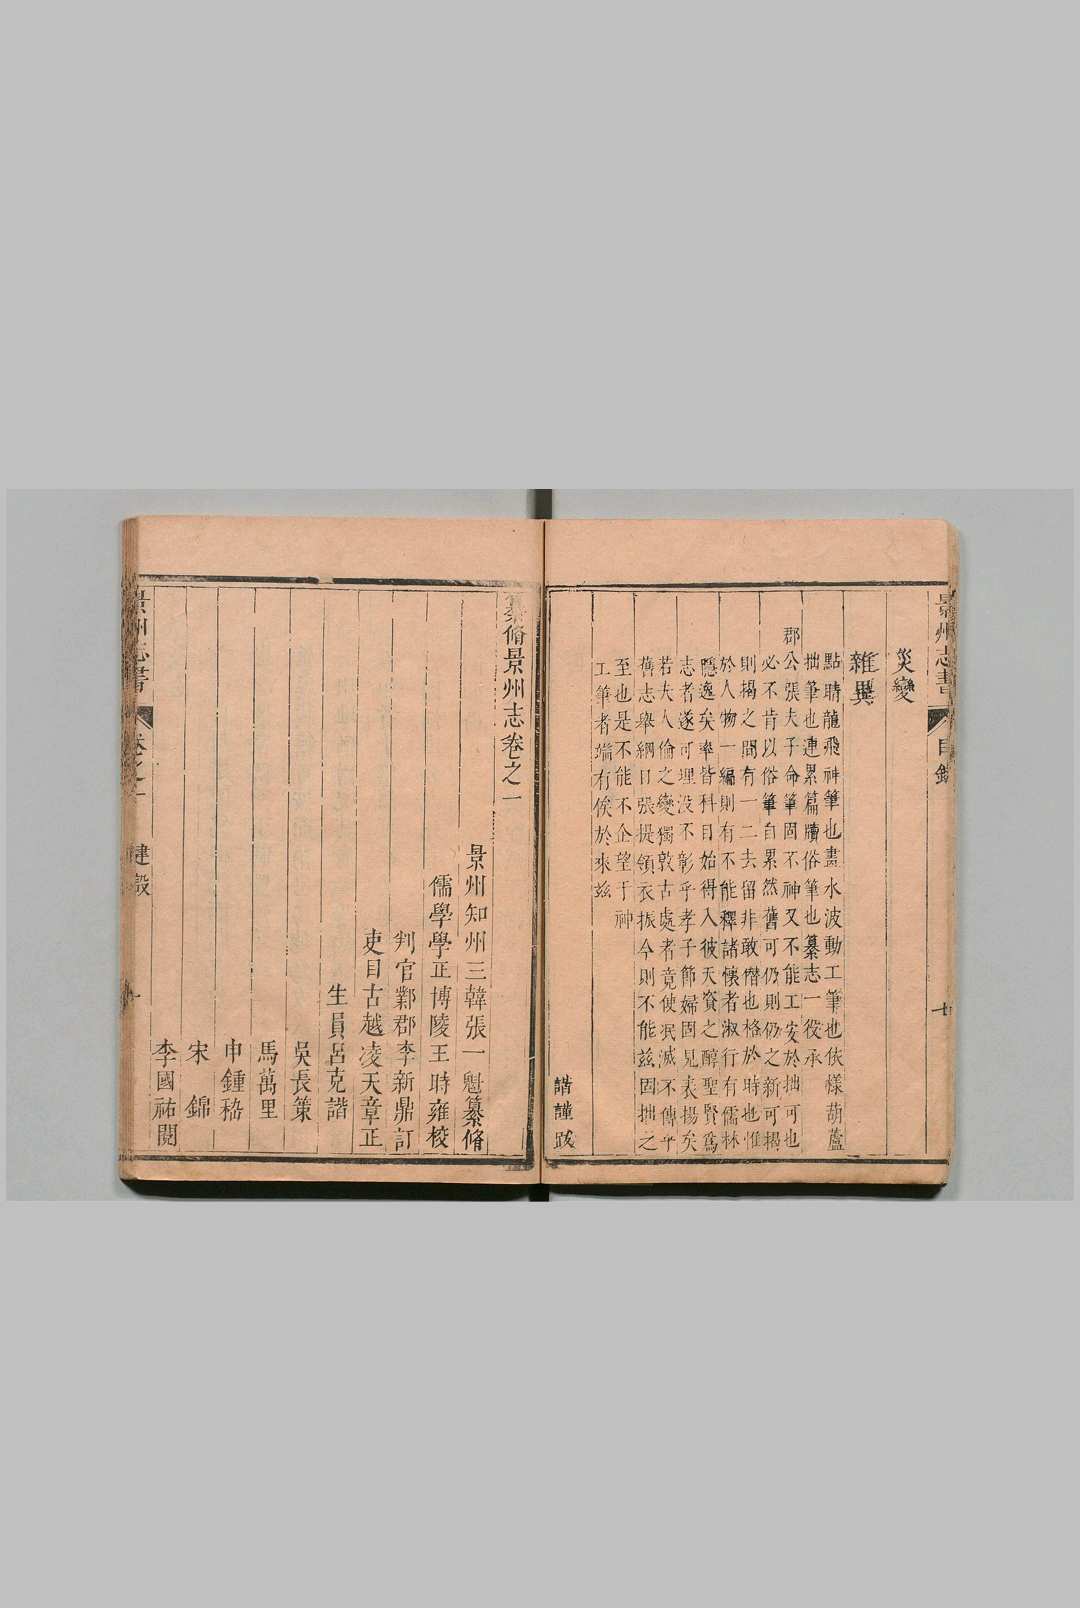 景州志書 目錄 七
災變
雜異
點睛龍飛神筆也畫水波動工筆也依樣葫蘆
拙筆也連累篇牘俗筆也纂志一役承
郡公張夫子命筆固不神又不能工安於拙可也
必不肯以俗筆自累然舊可仍則仍之新可揭
則揭之間有一二去留非敢僭也格於時也惟
於人物一編則有不能釋諸懷者淑行有儒林
隱逸矣率皆科目始得入彼天資之醇聖賢爲
志者遂可埋没不彰乎孝子節婦固見表揚矣
若夫人倫之變獨敦古處者竟使泯滅不傳乎
舊志舉綱目張提領衣振今則不能兹固拙之
至也是不能不企望于神
工筆者端有俟於來兹
諧謹跋
纂脩景州志卷之一
景州知州三韓張一魁纂脩
儒學學正博陵王時雍校
判官鄴郡李新鼎訂
吏目古越凌天章正
生員呂克諧
吳長策
馬萬里
申鍾嵇
宋錦
李國祐閱
景州志書 卷之一 建設 一